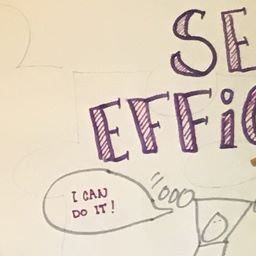 SE
EFFiC
I CAN
DO IT!